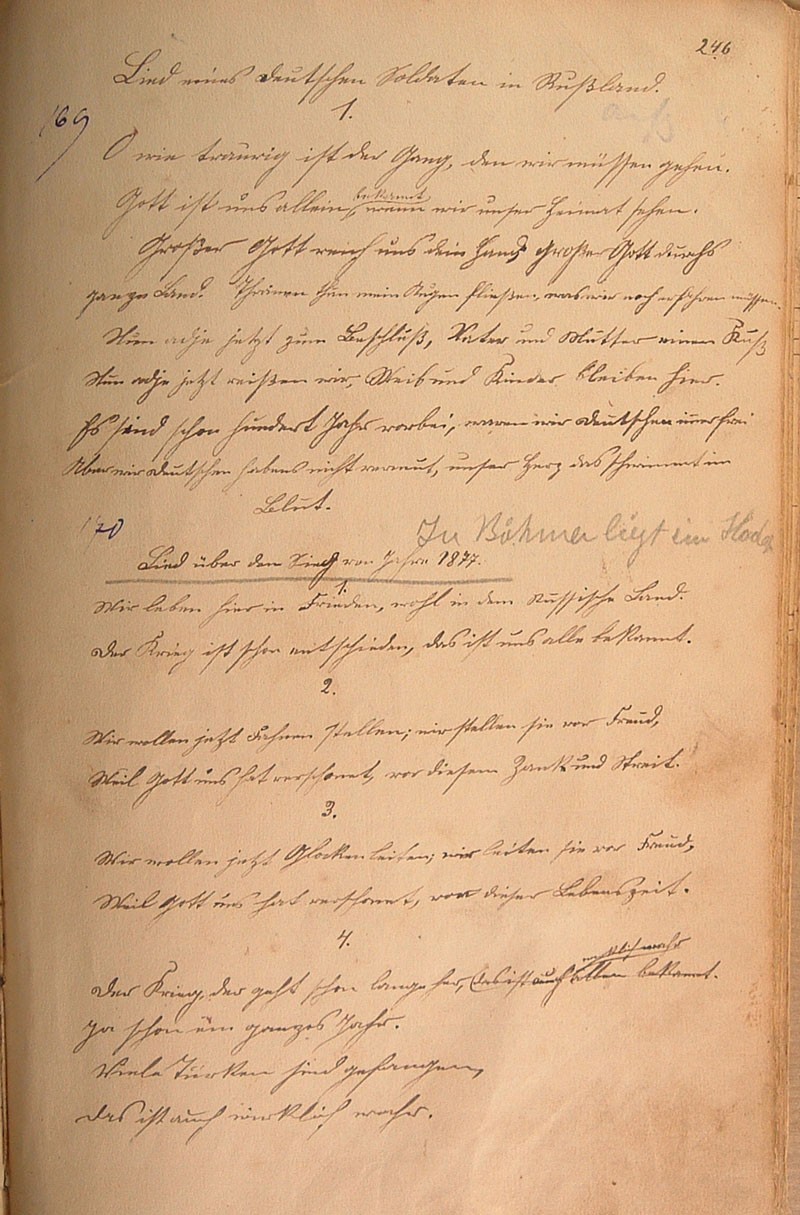 246
Lied eines deutschen Soldaten in Rußland.
1.
169
O wie traurig ist der Gang, den wir müssen gehen.
bekannt
Gott ist uns allein, wann wir unser Heimat sehen.
Großer Gott reich uns dein Hand, Großer Gott durchs
ganze Land. Thränen thun mein Augen fließen, was wir noch erfahren müssen.
Nun adje jetzt zum Beschluß, Vater und Mutter einen Kuß
Nun adje jetzt reißen wir, Weib und Kinder bleiben hier.
Es sind schon hundert Jahr vorbei, waren wir Deutschen immer frei
Aber wir Deutschen habens nicht vermut, unser Herz das schwimmt im
Blut.
170
In Böhmen liegt ein
Lied über den Sieg von Jahre 1877.
1.
Wir leben hier in Frieden, wohl in dem Russische Land.
Der Krieg ist schon entschieden, das ist uns alle bekannt.
2.
Wir wollen jetzt Fahnen stellen; wir stellen sie vor Freud,
Weil Gott uns hat verschonet, vor diesem Zank und Streit.
3.
Wir wollen jetzt Glocken leiten; wir leiten sie vor Freud,
Weil Gott uns hat verschonet, vor dieser Lebenszeit.
4.
wirklich wahr
Der Krieg, der geht schon lange her, das ist auch allen bekannt.
Ja schon ein ganzes Jahr.
Viele Türken sind gefangen,
das ist auch wirklich wahr.